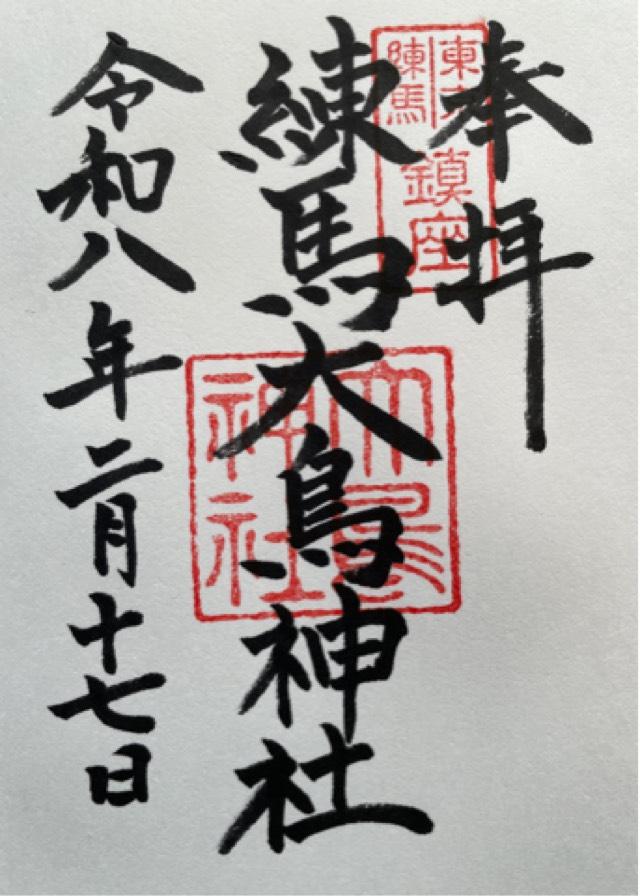 奉拝
東京
練馬
鎮座
練馬大鳥神社
大鳥
神社
令和八年二月十七日